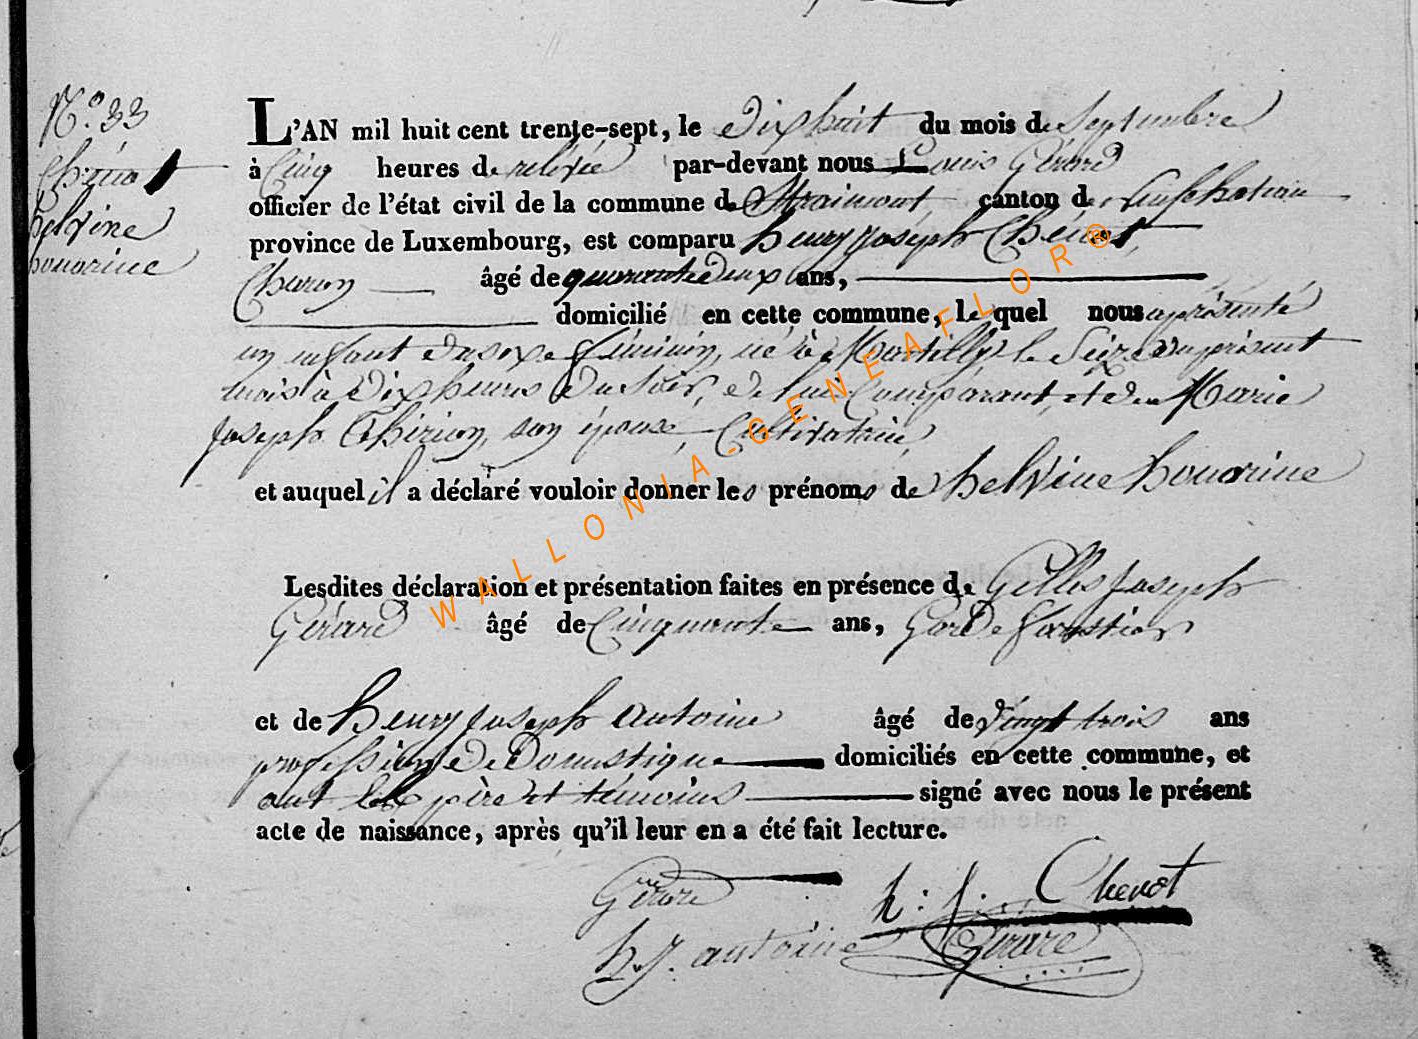 N.o 33
Chénot
helvine
honorine
L'AN mil huit cent trente-sept, le Dix huit du mois de Septembre
à Cinq heures de relévée par-devant nous Louis Gérard
officier de l'état civil de la commune de Straimont canton de Neufchateau
province de Luxembourg, est comparu henry Joseph Chénot,
Charon âgé de quarante deux ans,
domicilié en cette commune, le quel nous a présenté
un enfant du sexe féminin, né à Martilly le Seize du présent
mois à Dix heures du Soir, de lui Comparant, et de Marie
Joseph Thirion, son épouse, Cultivatrice,
et auquel il a déclaré vouloir donner les prénoms de helvine honorine
Lesdites déclaration et présentation faites en présence de Gilles Joseph
Gérard âgé de Cinquante ans, Garde forestier
et de henry Joseph antoine âgé de vingt trois ans
profession de Domestique domiciliés en cette commune, et
ont les père et témoins signé avec nous le présent
acte de naissance, après qu'il leur en a été fait lecture.
Gérard h: j: Chenot
h. J. antoine Gérard
WALLONIA.GENEAFLOR®